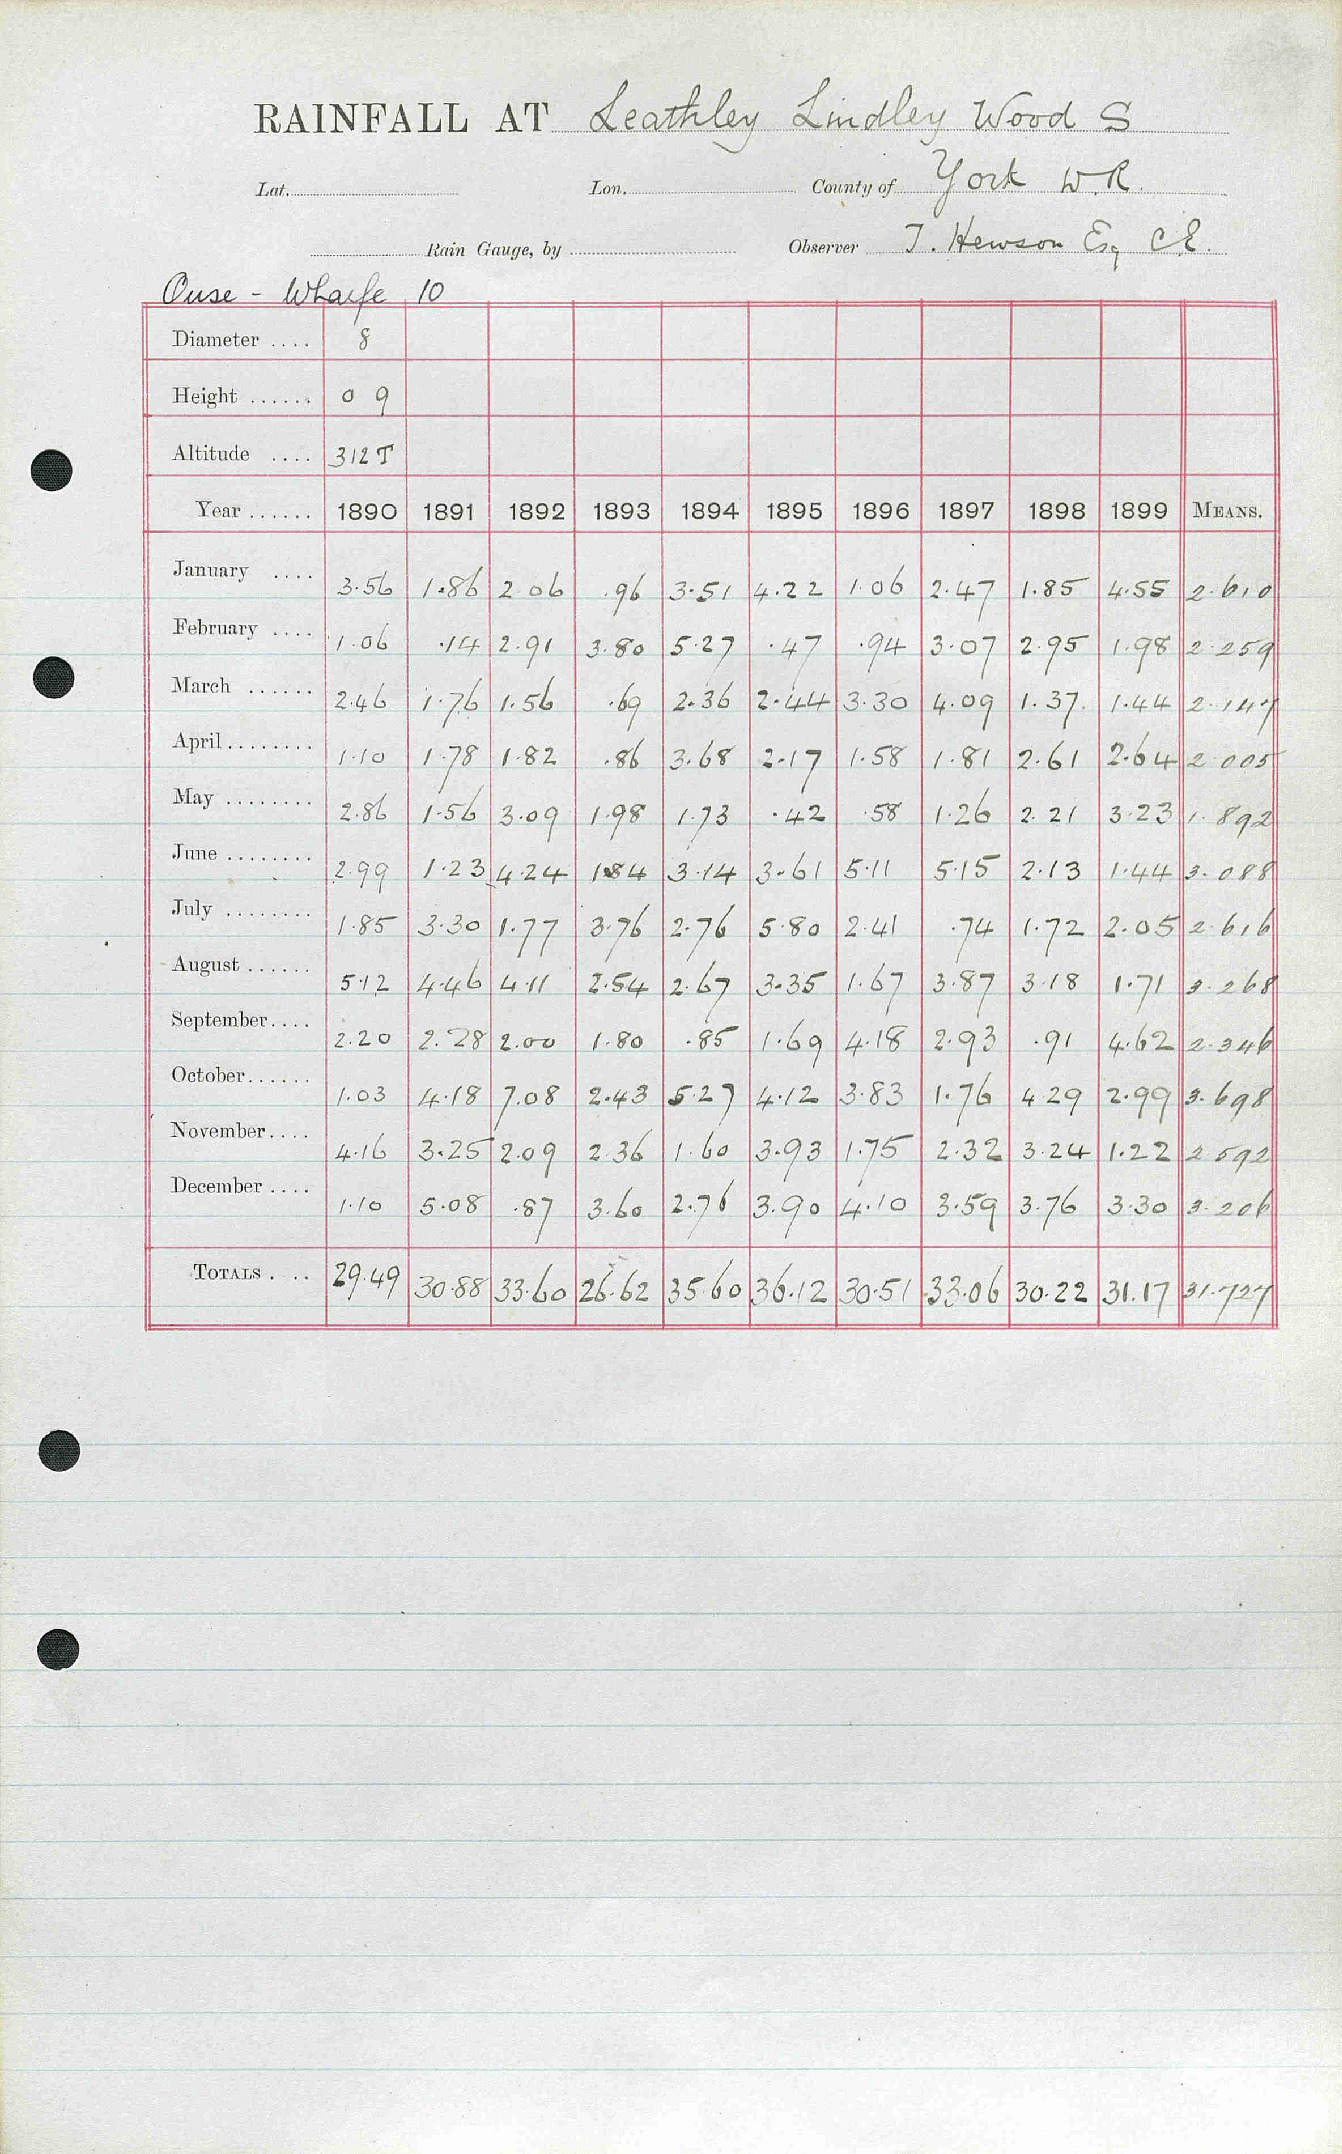 RAINFALL AT Leathley Lindley Wood S
Lat. Lon. County of York W.R.
Rain Gauge, by Observer T. Hewson Esq C.E.
Ouse - Wharfe 10
Diameter .... 8
Height ...... 0 9
Altitude .... 312 T
Year ...... 1890 1891 1892 1893 1894 1895 1896 1897 1898 1899 MEANS.
January .... 3.56 1.86 2.06 .96 3.51 4.22 1.06 2.47 1.85 4.55 2.610
February .... 1.06 .14 2.91 3.80 5.27 .47 .94 3.07 2.95 1.98 2.259
March ...... 2.46 1.76 1.56 .69 2.36 2.44 3.30 4.09 1.37 1.44 2.147
April ........ 1.10 1.78 1.82 .86 3.68 2.17 1.58 1.81 2.61 2.64 2.005
May ........ 2.86 1.56 3.09 1.98 1.73 .42 .58 1.26 2.21 3.23 1.892
June ........ 2.99 1.23 4.24 1.84 3.14 3.61 5.11 5.15 2.13 1.44 3.088
July ........ 1.85 3.30 1.77 3.76 2.76 5.80 2.41 .74 1.72 2.05 2.616
August ...... 5.12 4.46 4.11 2.54 2.67 3.35 1.67 3.87 3.18 1.71 3.268
September .... 2.20 2.28 2.00 1.80 .85 1.69 4.18 2.93 .91 4.62 2.346
October ...... 1.03 4.18 7.08 2.43 5.27 4.12 3.83 1.76 4.29 2.99 3.698
November .... 4.16 3.25 2.09 2.36 1.60 3.93 1.75 2.32 3.24 1.22 2.592
December .... 1.10 5.08 .87 3.60 2.76 3.90 4.10 3.59 3.76 3.30 3.206
TOTALS .... 29.49 30.88 33.60 26.62 35.60 36.12 30.51 33.06 30.22 31.17 31.727